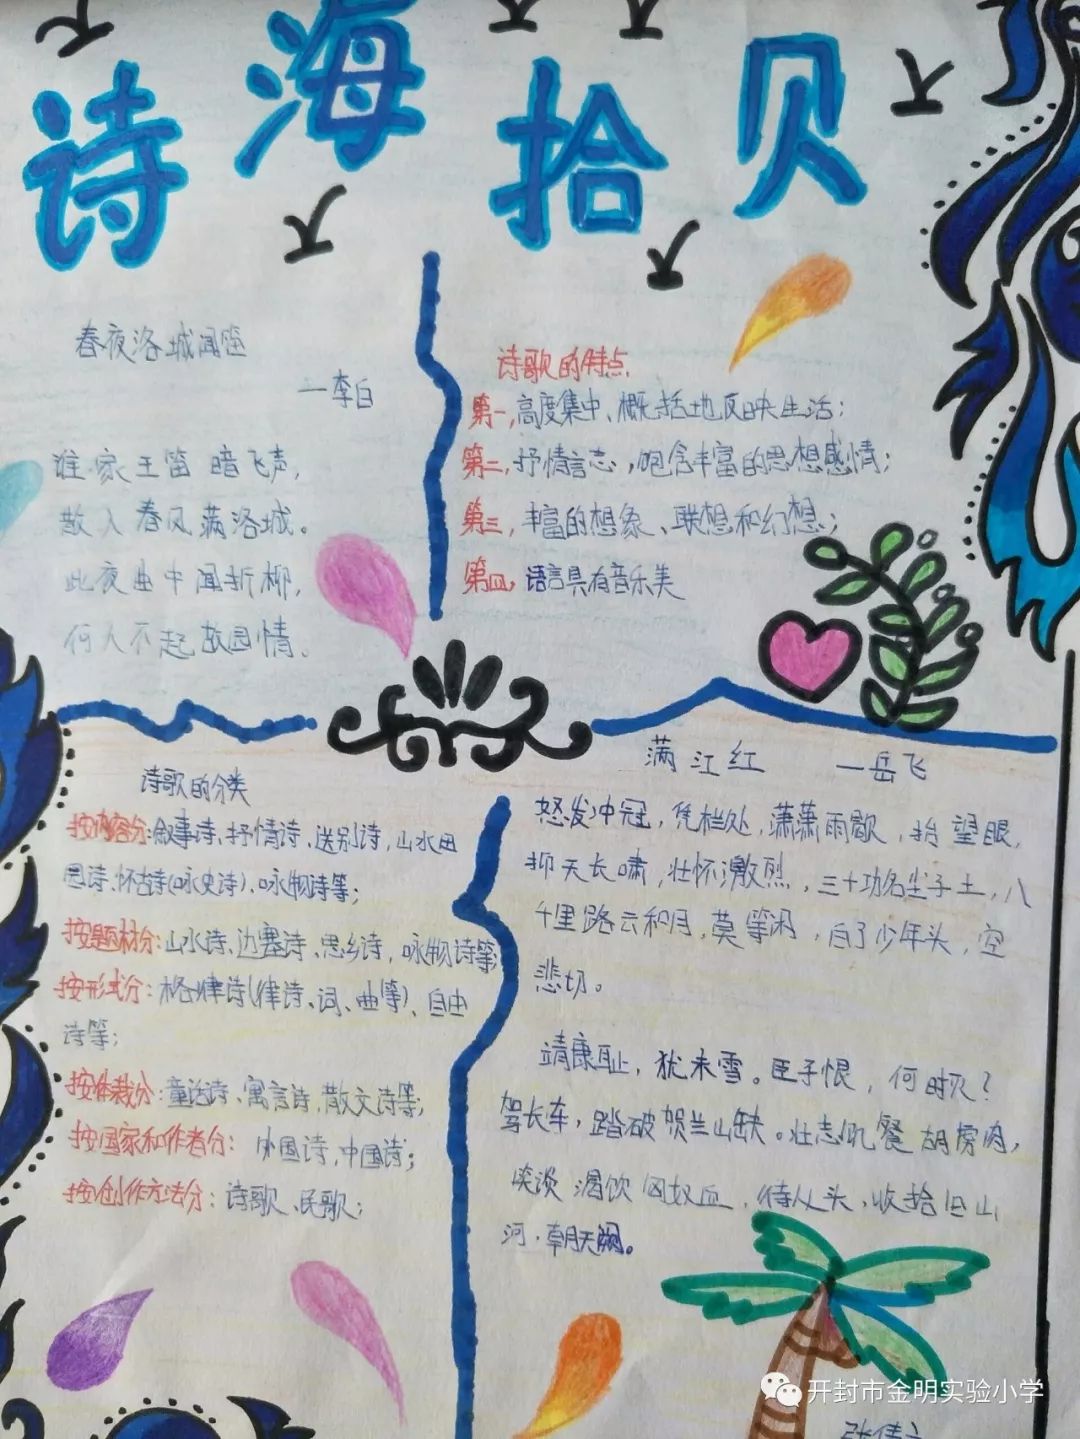 诗海拾贝
春夜洛城闻笛
—李白
谁家玉笛暗飞声,
散入春风满洛城。
此夜曲中闻折柳,
何人不起故园情、
诗歌的特点
第一,高度集中、概括地反映生活;
第二,抒情言志,饱含丰富的思想感情;
第三,丰富的想象、联想和幻想;
第四,语言具有音乐美
诗歌的分类
按内容分:叙事诗、抒情诗、送别诗,山水田
园诗、怀古诗(咏史诗)、咏物诗等;
按题材分:山水诗、边塞诗、思乡诗,咏物诗等
按形式分:格律诗(律诗、词、曲等)、自由
诗等;
按体裁分:童话诗、寓言诗,散文诗等;
按国家和作者分:外国诗,中国诗;
按创作方法分:诗歌、民歌;
满江红 —岳飞
怒发冲冠,凭栏处,潇潇雨歇,抬望眼,
抑天长啸,壮怀激烈,三十功名尘子土,八
千里路云和月,莫等闲,白了少年头,空
悲切。
靖康耻,犹未雪。臣子恨,何时灭?
驾长车,踏破贺兰山缺。壮志饥餐胡虏肉,
笑谈渴饮匈奴血,待从头,收拾旧山
河,朝天阙。
开封市金明实验小学